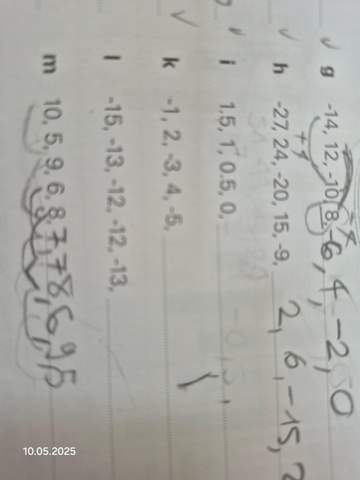 g -14, 12, -10, 8, -6, 4, -2, 0
h -27, 24, -20, 15, -9, 2, 6, -15,
i 1.5, 1, 0.5, 0,
k -1, 2, -3, 4, -5,
l -15, -13, -12, -12, -13,
m 10, 5, 9, 6, 8, 7, 7, 8, 6, 9, 5
10.05.2025